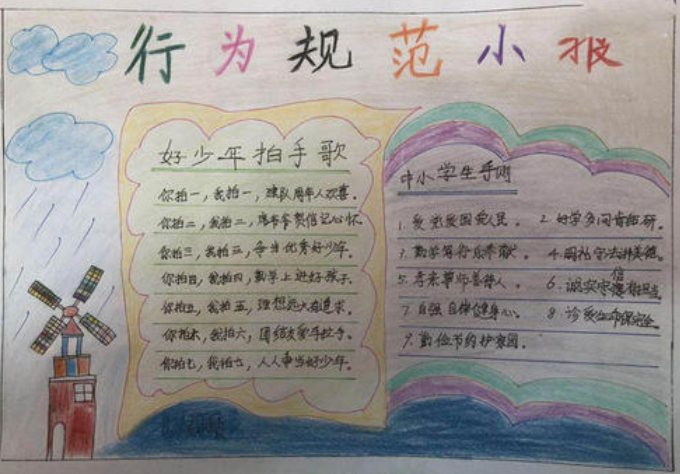 行为规范小报
好少年拍手歌
你拍一，我拍一，建队周年人欢喜。
你拍二，我拍二，席爷爷贺信记心怀.
你拍三，我拍三，争当优秀好少年。
你拍四，我拍四，勤学上进好孩子。
你拍五，我拍五，理想远大有追求。
你拍六，我拍六，团结友爱手拉手。
你拍七，我拍七，人人争当好少年。
中小学生手则
1. 爱党爱国爱人民。 2. 好学多问肯钻研。
3. 勤学笃行乐奉献。 4. 明礼守法讲美德。
5. 孝亲尊师善待人。 6. 诚实守信有担当
7. 自强自律健身心。 8. 珍爱生命保安全。
9. 勤俭节约护家园.